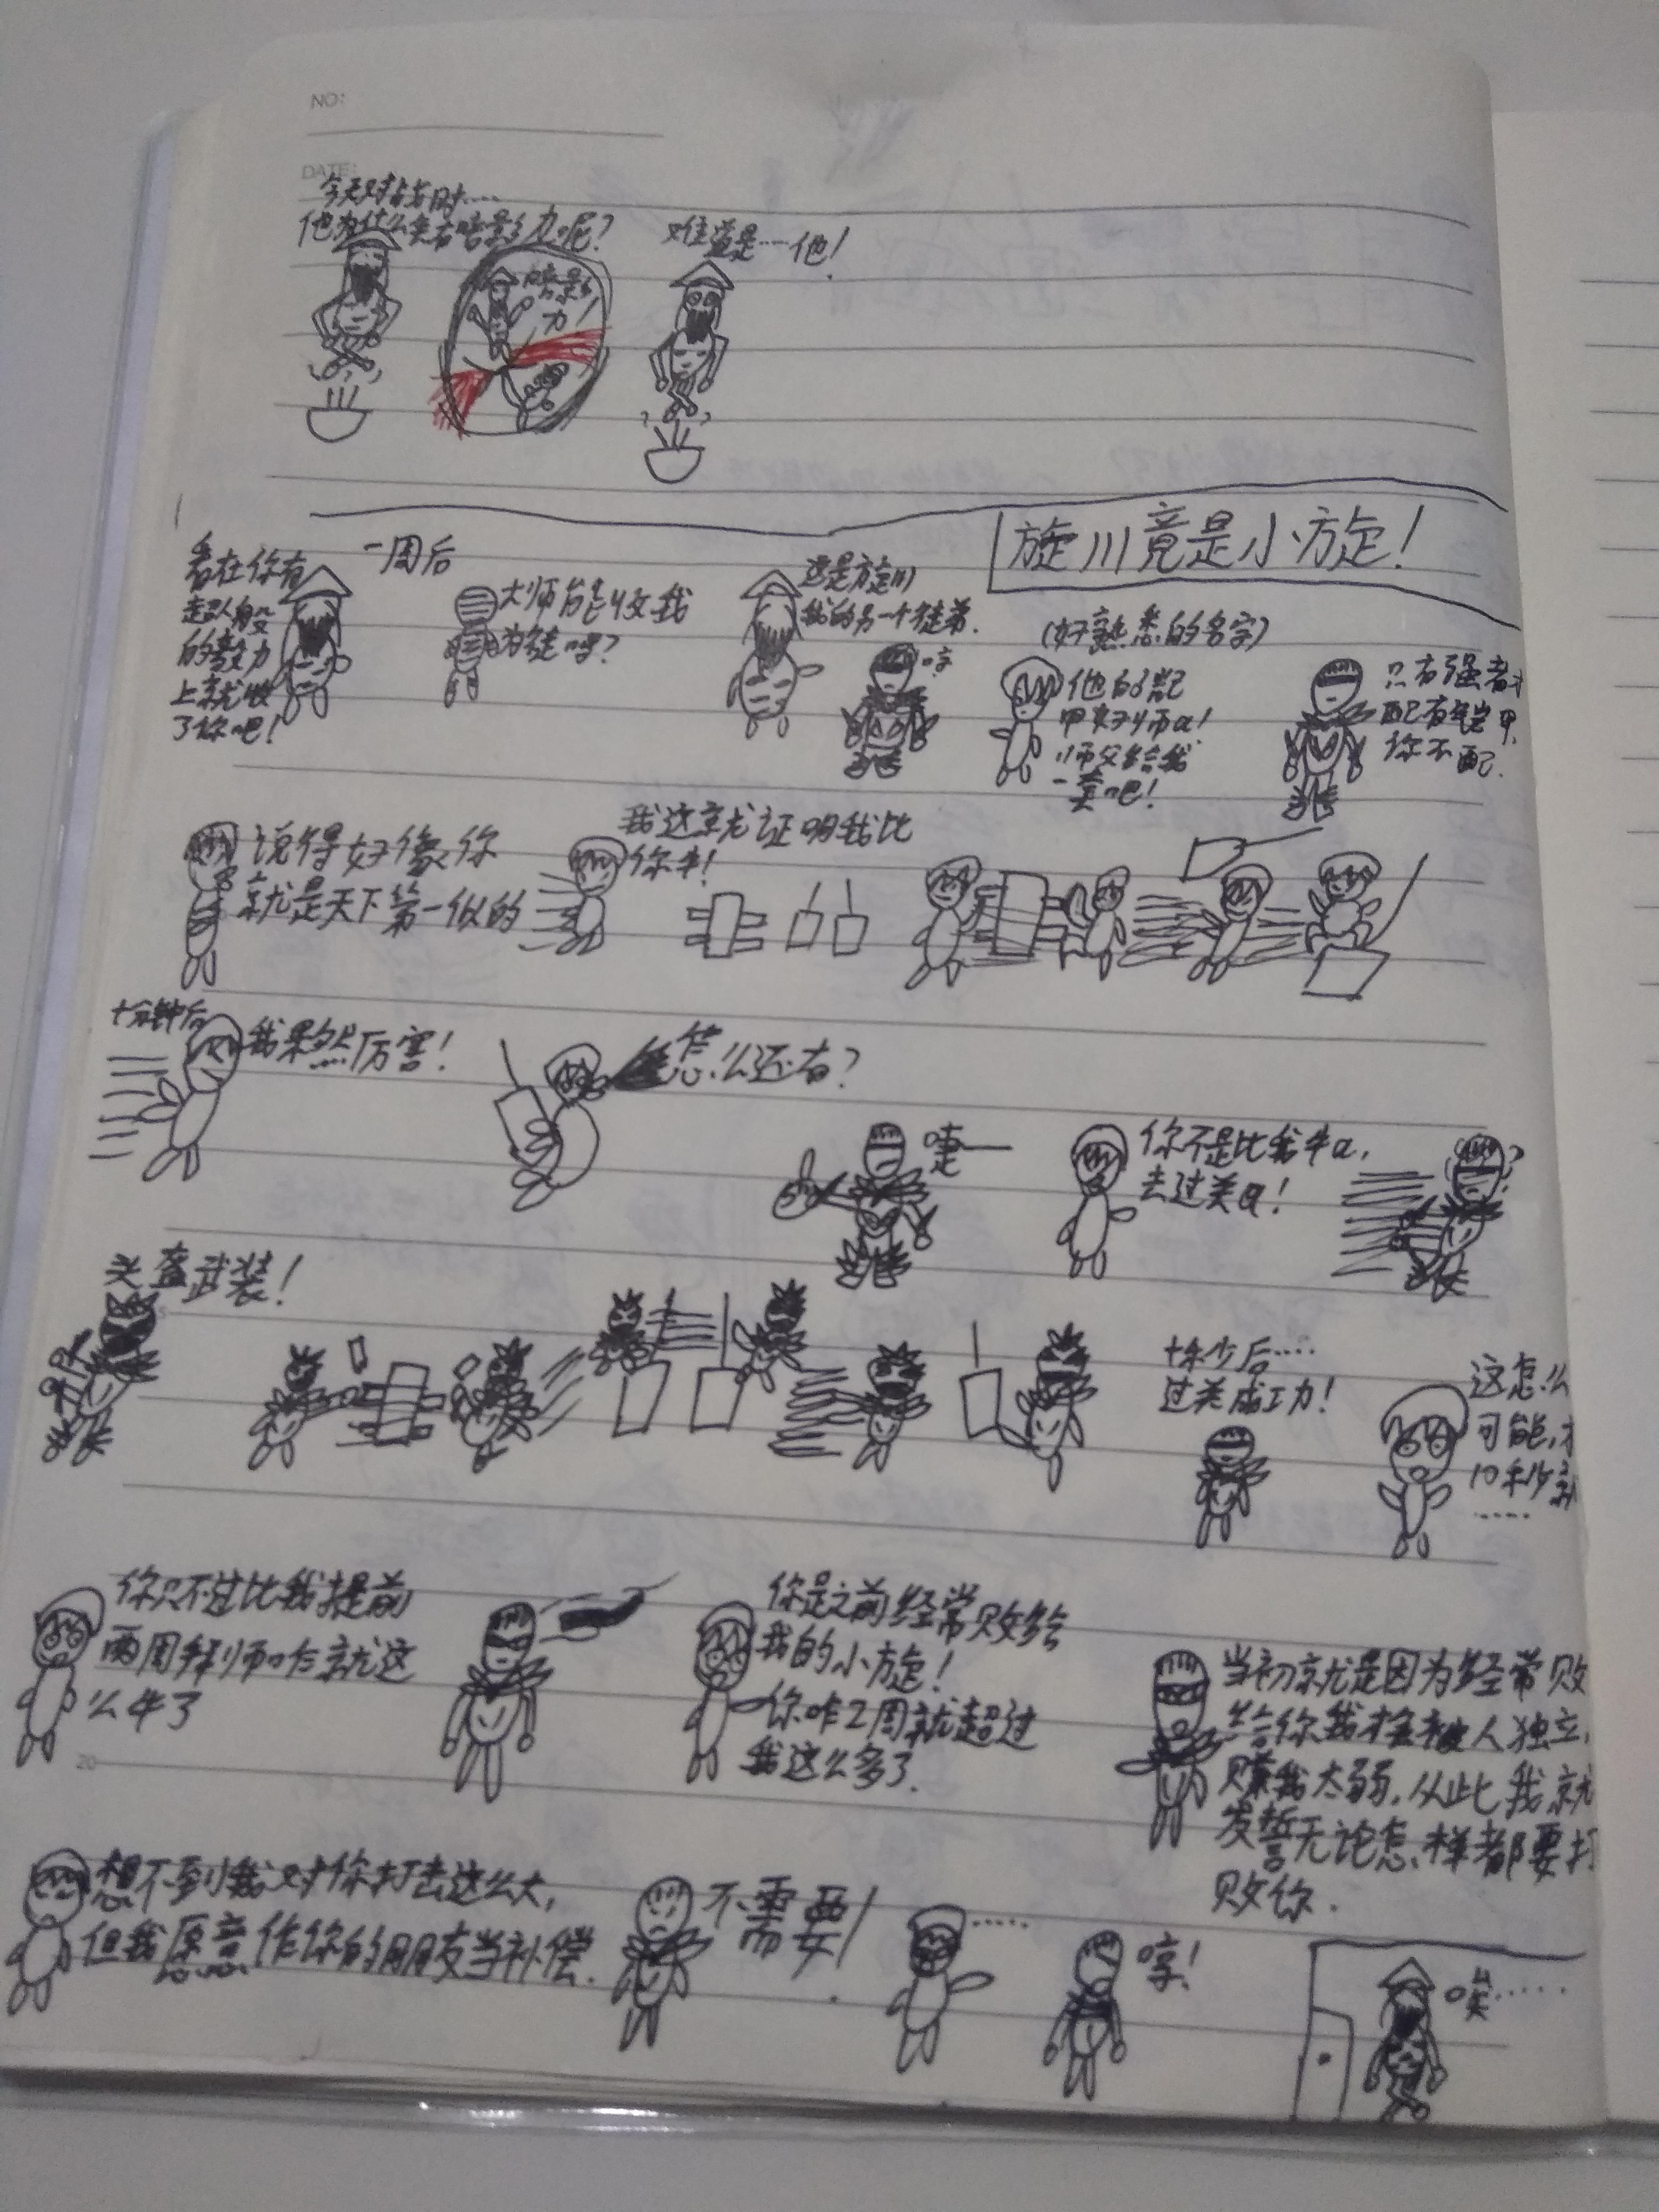 NO:
DATE:
今天对占与时……
他为什么会有暗影力呢?
暗影
力!
难道是……他!
旋川竟是小旋!
一周后
大师能收我
为徒吗?
看在你有
超人般
的毅力
上就收
了你吧!
这是旋川
我的另一个徒弟.
哼
(好熟悉的名字)
他的铠
甲好帅a!
师父给我
一套吧!
只有强者才
配有铠甲,
你不配.
说得好像你
就是天下第一似的
我这就证明我比
你牛!
十分钟后
我果然厉害!
怎么还有?
嚏一
你不是比我牛a,
去过关a!
头盔武装!
十秒后……
过关成功!
这怎么
可能,才
10秒就
……
你只不过比我提前
两周拜师咋就这
么牛了
你是之前经常败给
我的小旋!
你咋2周就超过
我这么多了.
当初就是因为经常败
给你我才被人独立,
嫌我太弱.从此我就
发誓无论怎样都要打
败你.
想不到我对你打击这么大,
但我愿意作你的朋友当补偿.
不需要!
……
哼!
唉……
20